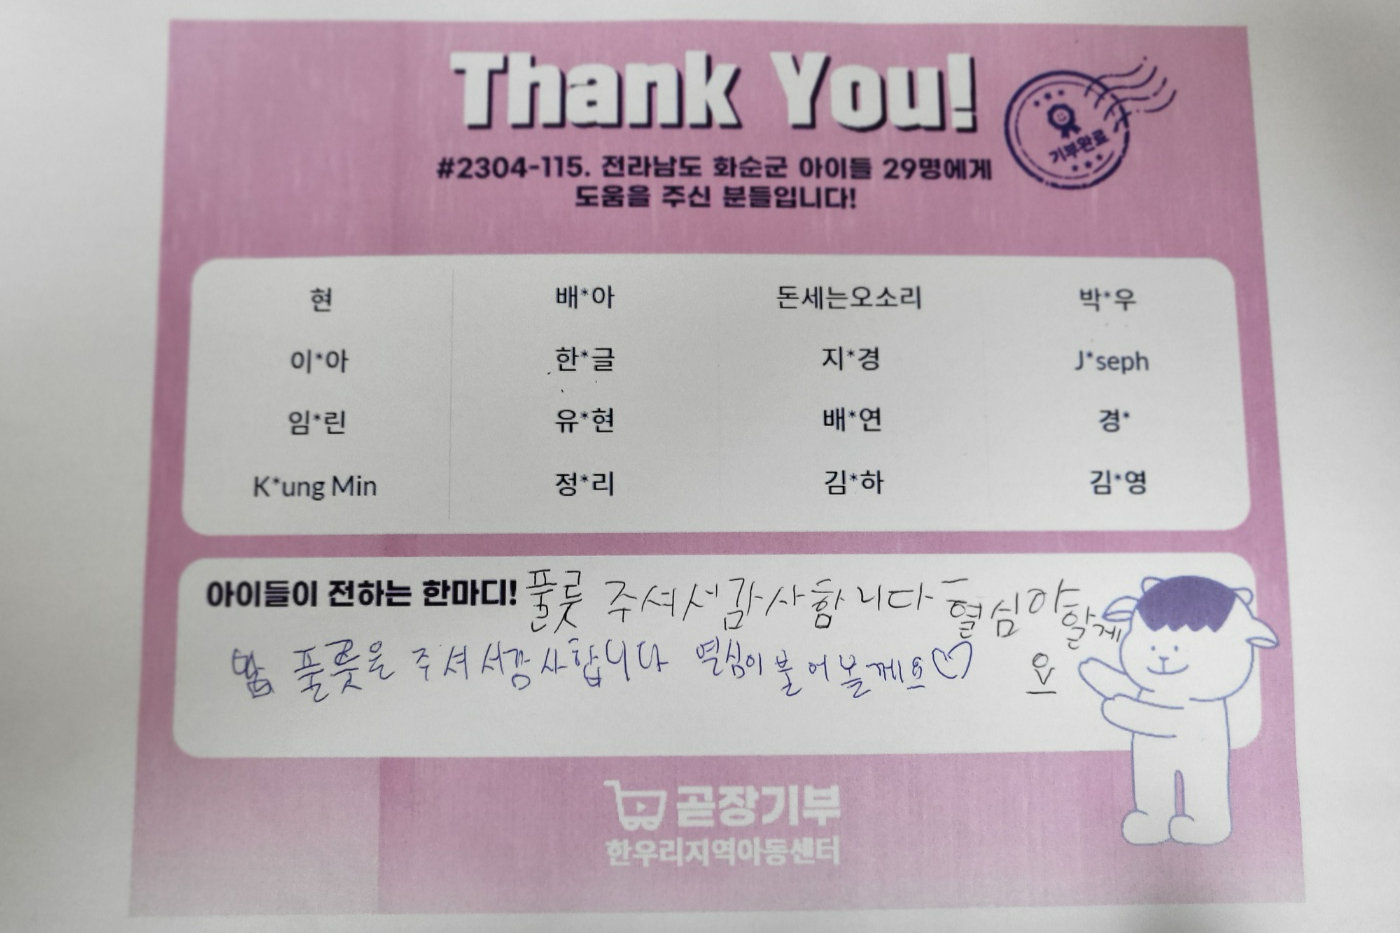 Thank You!
기부완료
#2304-115. 전라남도 화순군 아이들 29명에게
도움을 주신 분들입니다!
현 배*아 돈세는오소리 박*우
이*아 한*글 지*경 J*seph
임*린 유*현 배*연 경*
K*ung Min 정*리 김*하 김*영
아이들이 전하는 한마디! 풀룻 주셔서감사함니다 혈심이 할게
요
풀룻을 주셔서감사합니다 열심이 불어볼께요♡
곧장기부
한우리지역아동센터